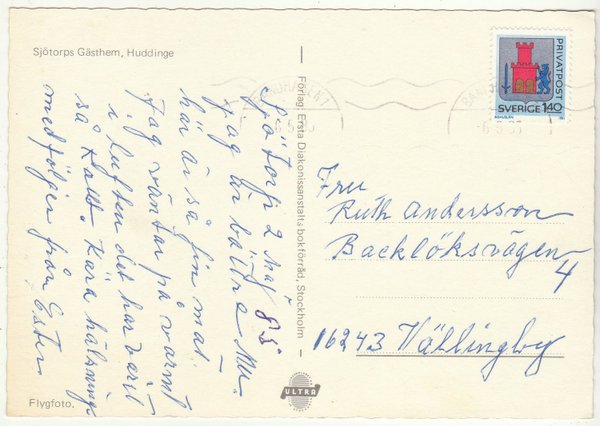 Sjötorps Gästhem, Huddinge
Sjötorp 2 maj 85
Jag är bättre nu.
här är så fin mat.
Jag väntar på varmt
i luften det har varit
så kallt, Kära hälsnings
medföljer från Ester
Flygfoto.
Förlag: Ersta Diakonissanstalts bokförråd, Stockholm
ULTRA
PRIVATPOST
SVERIGE 140
BOHUSLÄN
Fru
Ruth Andersson
Backlöksvägen
4
16243 Vällingby